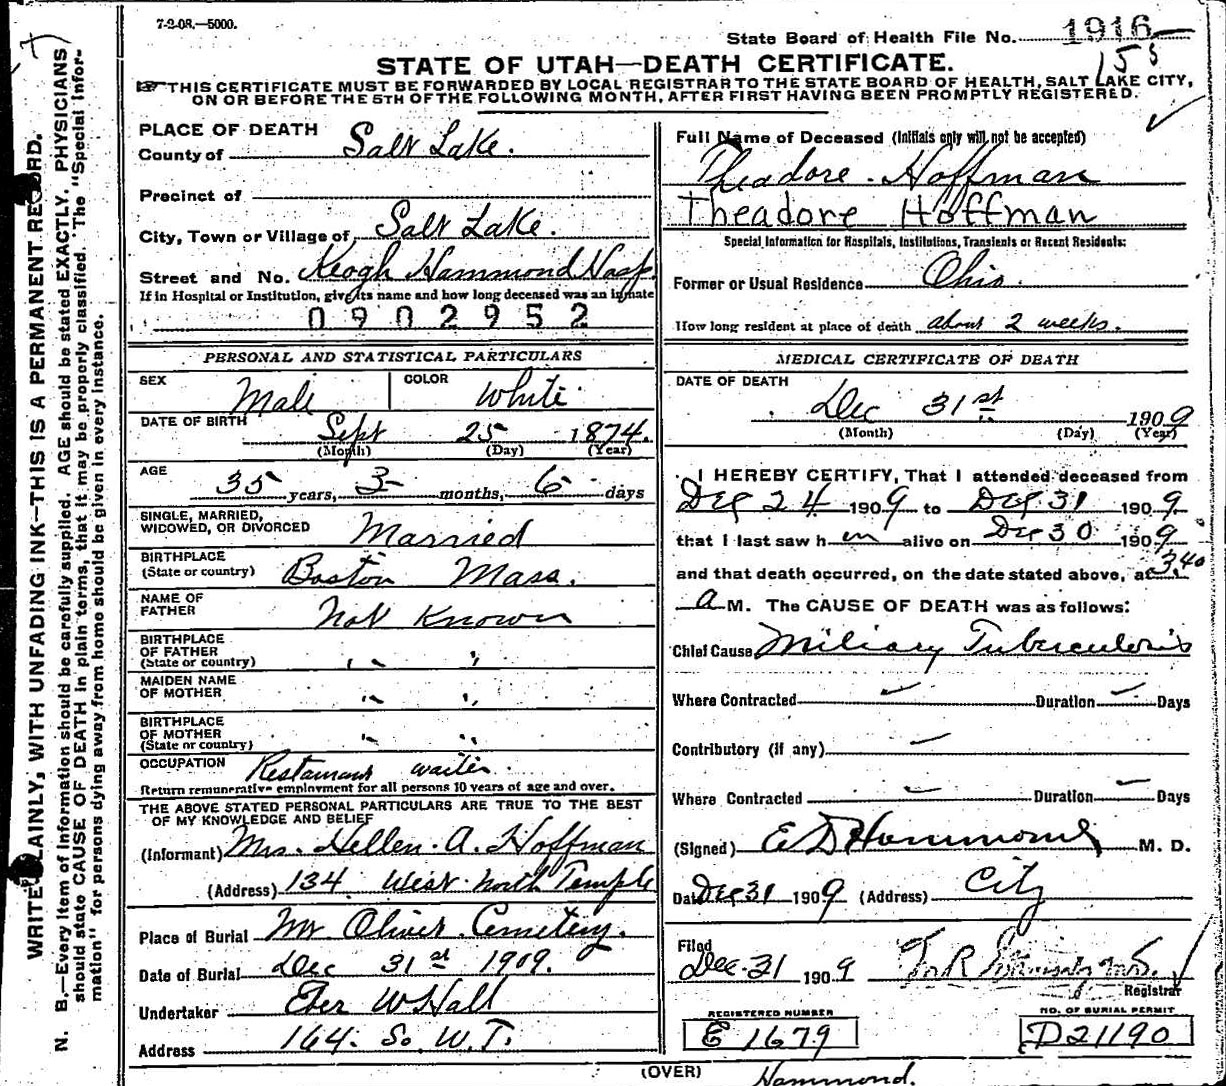 7-2-08.—5000.
State Board of Health File No. 1916
155
STATE OF UTAH—DEATH CERTIFICATE.
THIS CERTIFICATE MUST BE FORWARDED BY LOCAL REGISTRAR TO THE STATE BOARD OF HEALTH, SALT LAKE CITY,
ON OR BEFORE THE 5TH OF THE FOLLOWING MONTH, AFTER FIRST HAVING BEEN PROMPTLY REGISTERED.
WRITE PLAINLY, WITH UNFADING INK—THIS IS A PERMANENT RECORD.
N. B.—Every item of Information should be carefully supplied. AGE should be stated EXACTLY. PHYSICIANS
should state CAUSE OF DEATH in plain terms, that it may be properly classified. The "Special Infor-
mation" for persons dying away from home should be given in every instance.
PLACE OF DEATH
County of Salt Lake.
Precinct of
City, Town or Village of Salt Lake.
Street and No. Keogh Hammond Hosp
If in Hospital or Institution, give its name and how long deceased was an inmate
0902952
PERSONAL AND STATISTICAL PARTICULARS
SEX Male COLOR White
DATE OF BIRTH Sept 25 1874.
(Month) (Day) (Year)
AGE 35 years, 3 months, 6 days
SINGLE, MARRIED,
WIDOWED, OR DIVORCED Married
BIRTHPLACE
(State or country) Boston Mass.
NAME OF
FATHER Not Known
BIRTHPLACE
OF FATHER
(State or country) " "
MAIDEN NAME
OF MOTHER " "
BIRTHPLACE
OF MOTHER
(State or country) " "
OCCUPATION Restaurant waiter.
Return remunerative employment for all persons 10 years of age and over.
THE ABOVE STATED PERSONAL PARTICULARS ARE TRUE TO THE BEST
OF MY KNOWLEDGE AND BELIEF
(Informant) Mrs. Hellen A. Hoffman
(Address) 134 West North Temple
Place of Burial Mt Olivet Cemetery.
Date of Burial Dec 31st 1909.
Undertaker Eber W Hall
Address 164. So. W. T.
Full Name of Deceased (Initials only will not be accepted)
Theadore Hoffman
Theadore Hoffman
Special Information for Hospitals, Institutions, Transients or Recent Residents:
Former or Usual Residence Ohio.
How long resident at place of death about 2 weeks.
MEDICAL CERTIFICATE OF DEATH
DATE OF DEATH
Dec 31st 1909
(Month) (Day) (Year)
I HEREBY CERTIFY, That I attended deceased from
Dec 24 1909 to Dec 31 1909.
that I last saw him alive on Dec 30 1909
and that death occurred, on the date stated above, at 3.40
a M. The CAUSE OF DEATH was as follows:
Chief Cause Miliary Tuberculosis
Where Contracted Duration Days
Contributory (if any)
Where Contracted Duration Days
(Signed) E D Hammond M. D.
Date Dec 31 1909 (Address) City
Filed
Dec. 31 1909
Registrar
REGISTERED NUMBER
E 1679
NO. OF BURIAL PERMIT
D21190
(OVER)
Hammond.